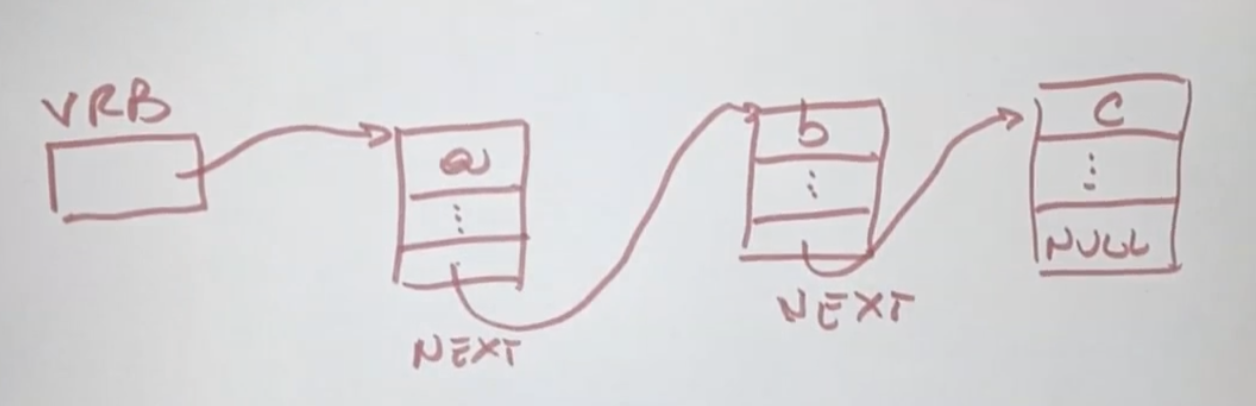 VRB
a
⋮
NEXT
b
⋮
NEXT
c
⋮
NULL